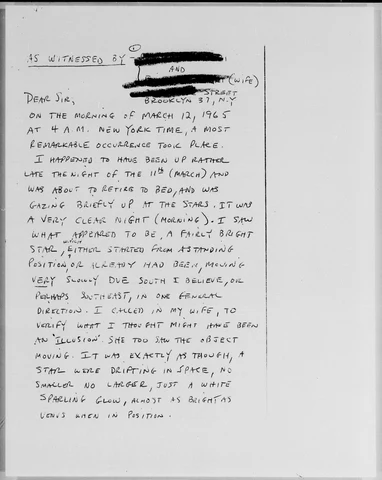 AS WITNESSED BY
AND
(WIFE)
STREET
DEAR SIR, BROOKLYN 37, N.Y
ON THE MORNING OF MARCH 12, 1965
AT 4 A.M. NEW YORK TIME, A MOST
REMARKABLE OCCURRENCE TOOK PLACE.
I HAPPENED TO HAVE BEEN UP RATHER
LATE THE NIGHT OF THE 11th (MARCH) AND
WAS ABOUT TO RETIRE TO BED, AND WAS
GAZING BRIEFLY UP AT THE STARS. IT WAS
A VERY CLEAR NIGHT (MORNING). I SAW
WHAT APPEARED TO BE, A FAIRLY BRIGHT
STAR, WHICH EITHER STARTED FROM A STANDING
POSITION, OR ALREADY HAD BEEN, MOVING
VERY SLOWLY DUE SOUTH I BELIEVE, OR
PERHAPS SOUTHEAST, IN ONE GENERAL
DIRECTION. I CALLED IN MY WIFE, TO
VERIFY WHAT I THOUGHT MIGHT HAVE BEEN
AN "ILLUSION". SHE TOO SAW THE OBJECT
MOVING. IT WAS EXACTLY AS THOUGH, A
STAR WERE DRIFTING IN SPACE, NO
SMALLER NO LARGER, JUST A WHITE
SPARLING GLOW, ALMOST AS BRIGHT AS
VENUS WHEN IN POSITION.